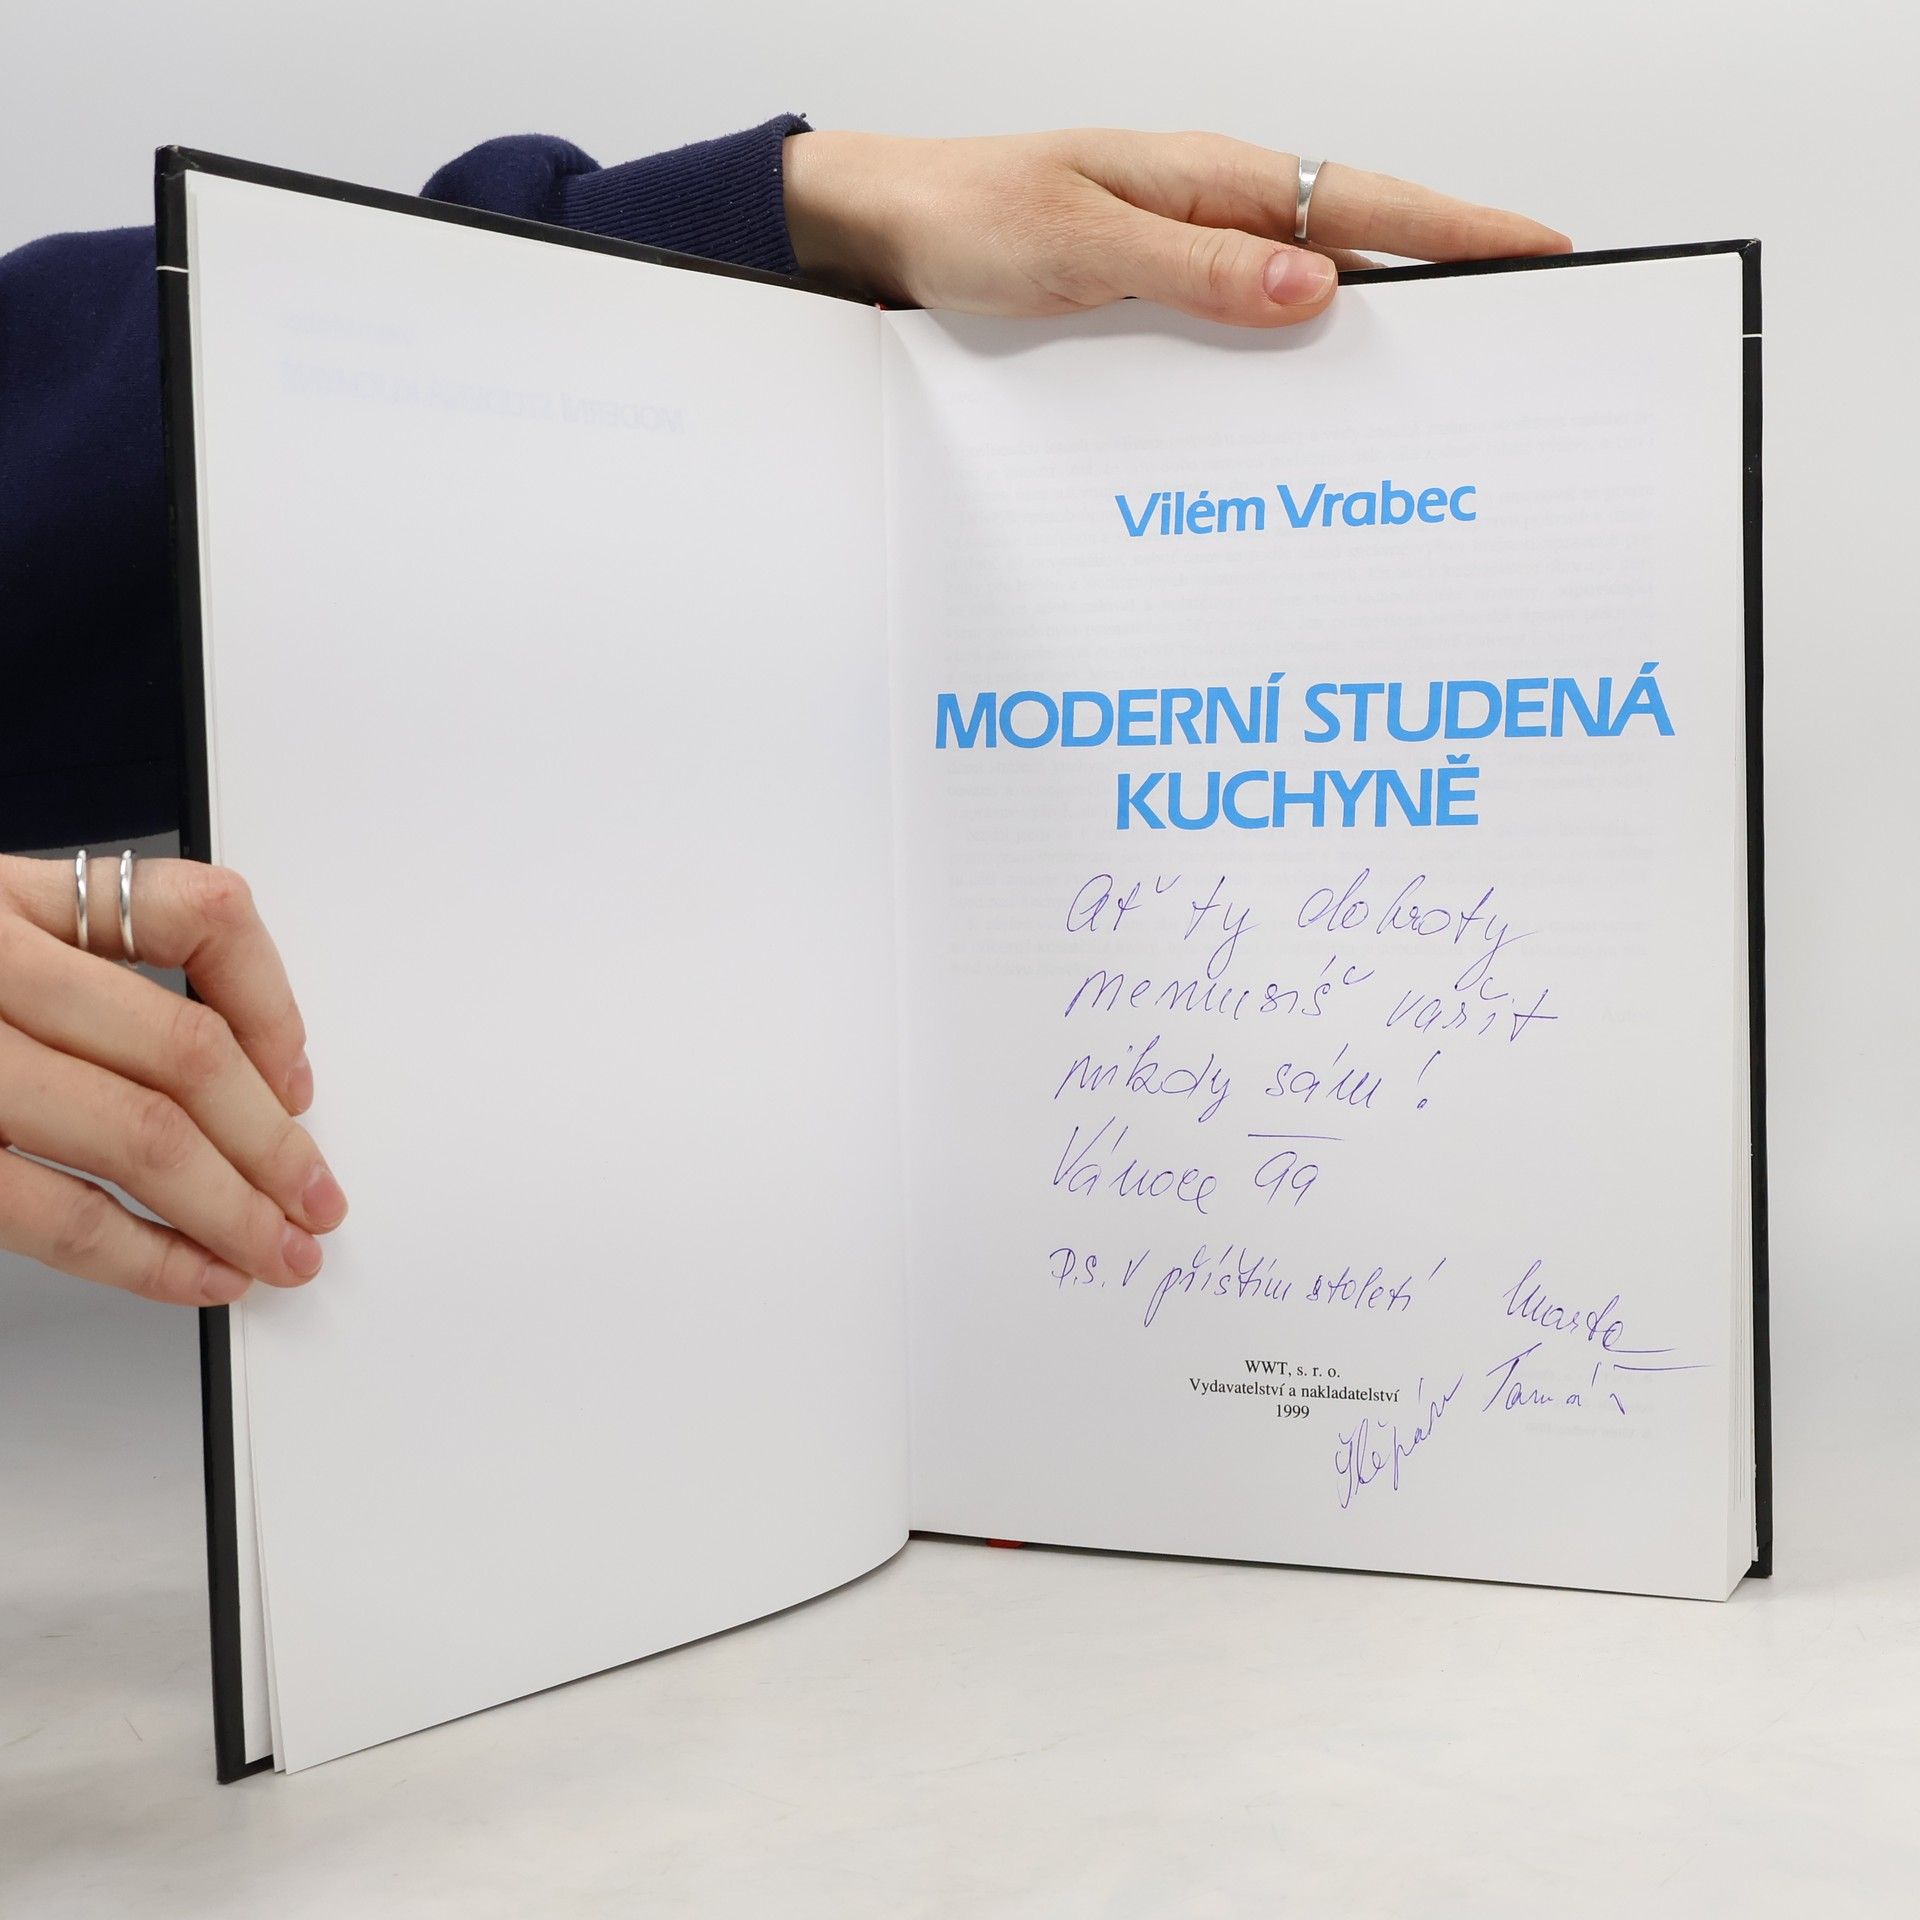 Vilém Vrabec
MODERNÍ STUDENÁ
KUCHYNĚ
Ať ty dobroty
nemusíš vařit
nikdy sám!
Vánoce 99
P.S. V příštím století
Marta
Tomáš
Štěpán
WWT, s. r. o.
Vydavatelství a nakladatelství
1999